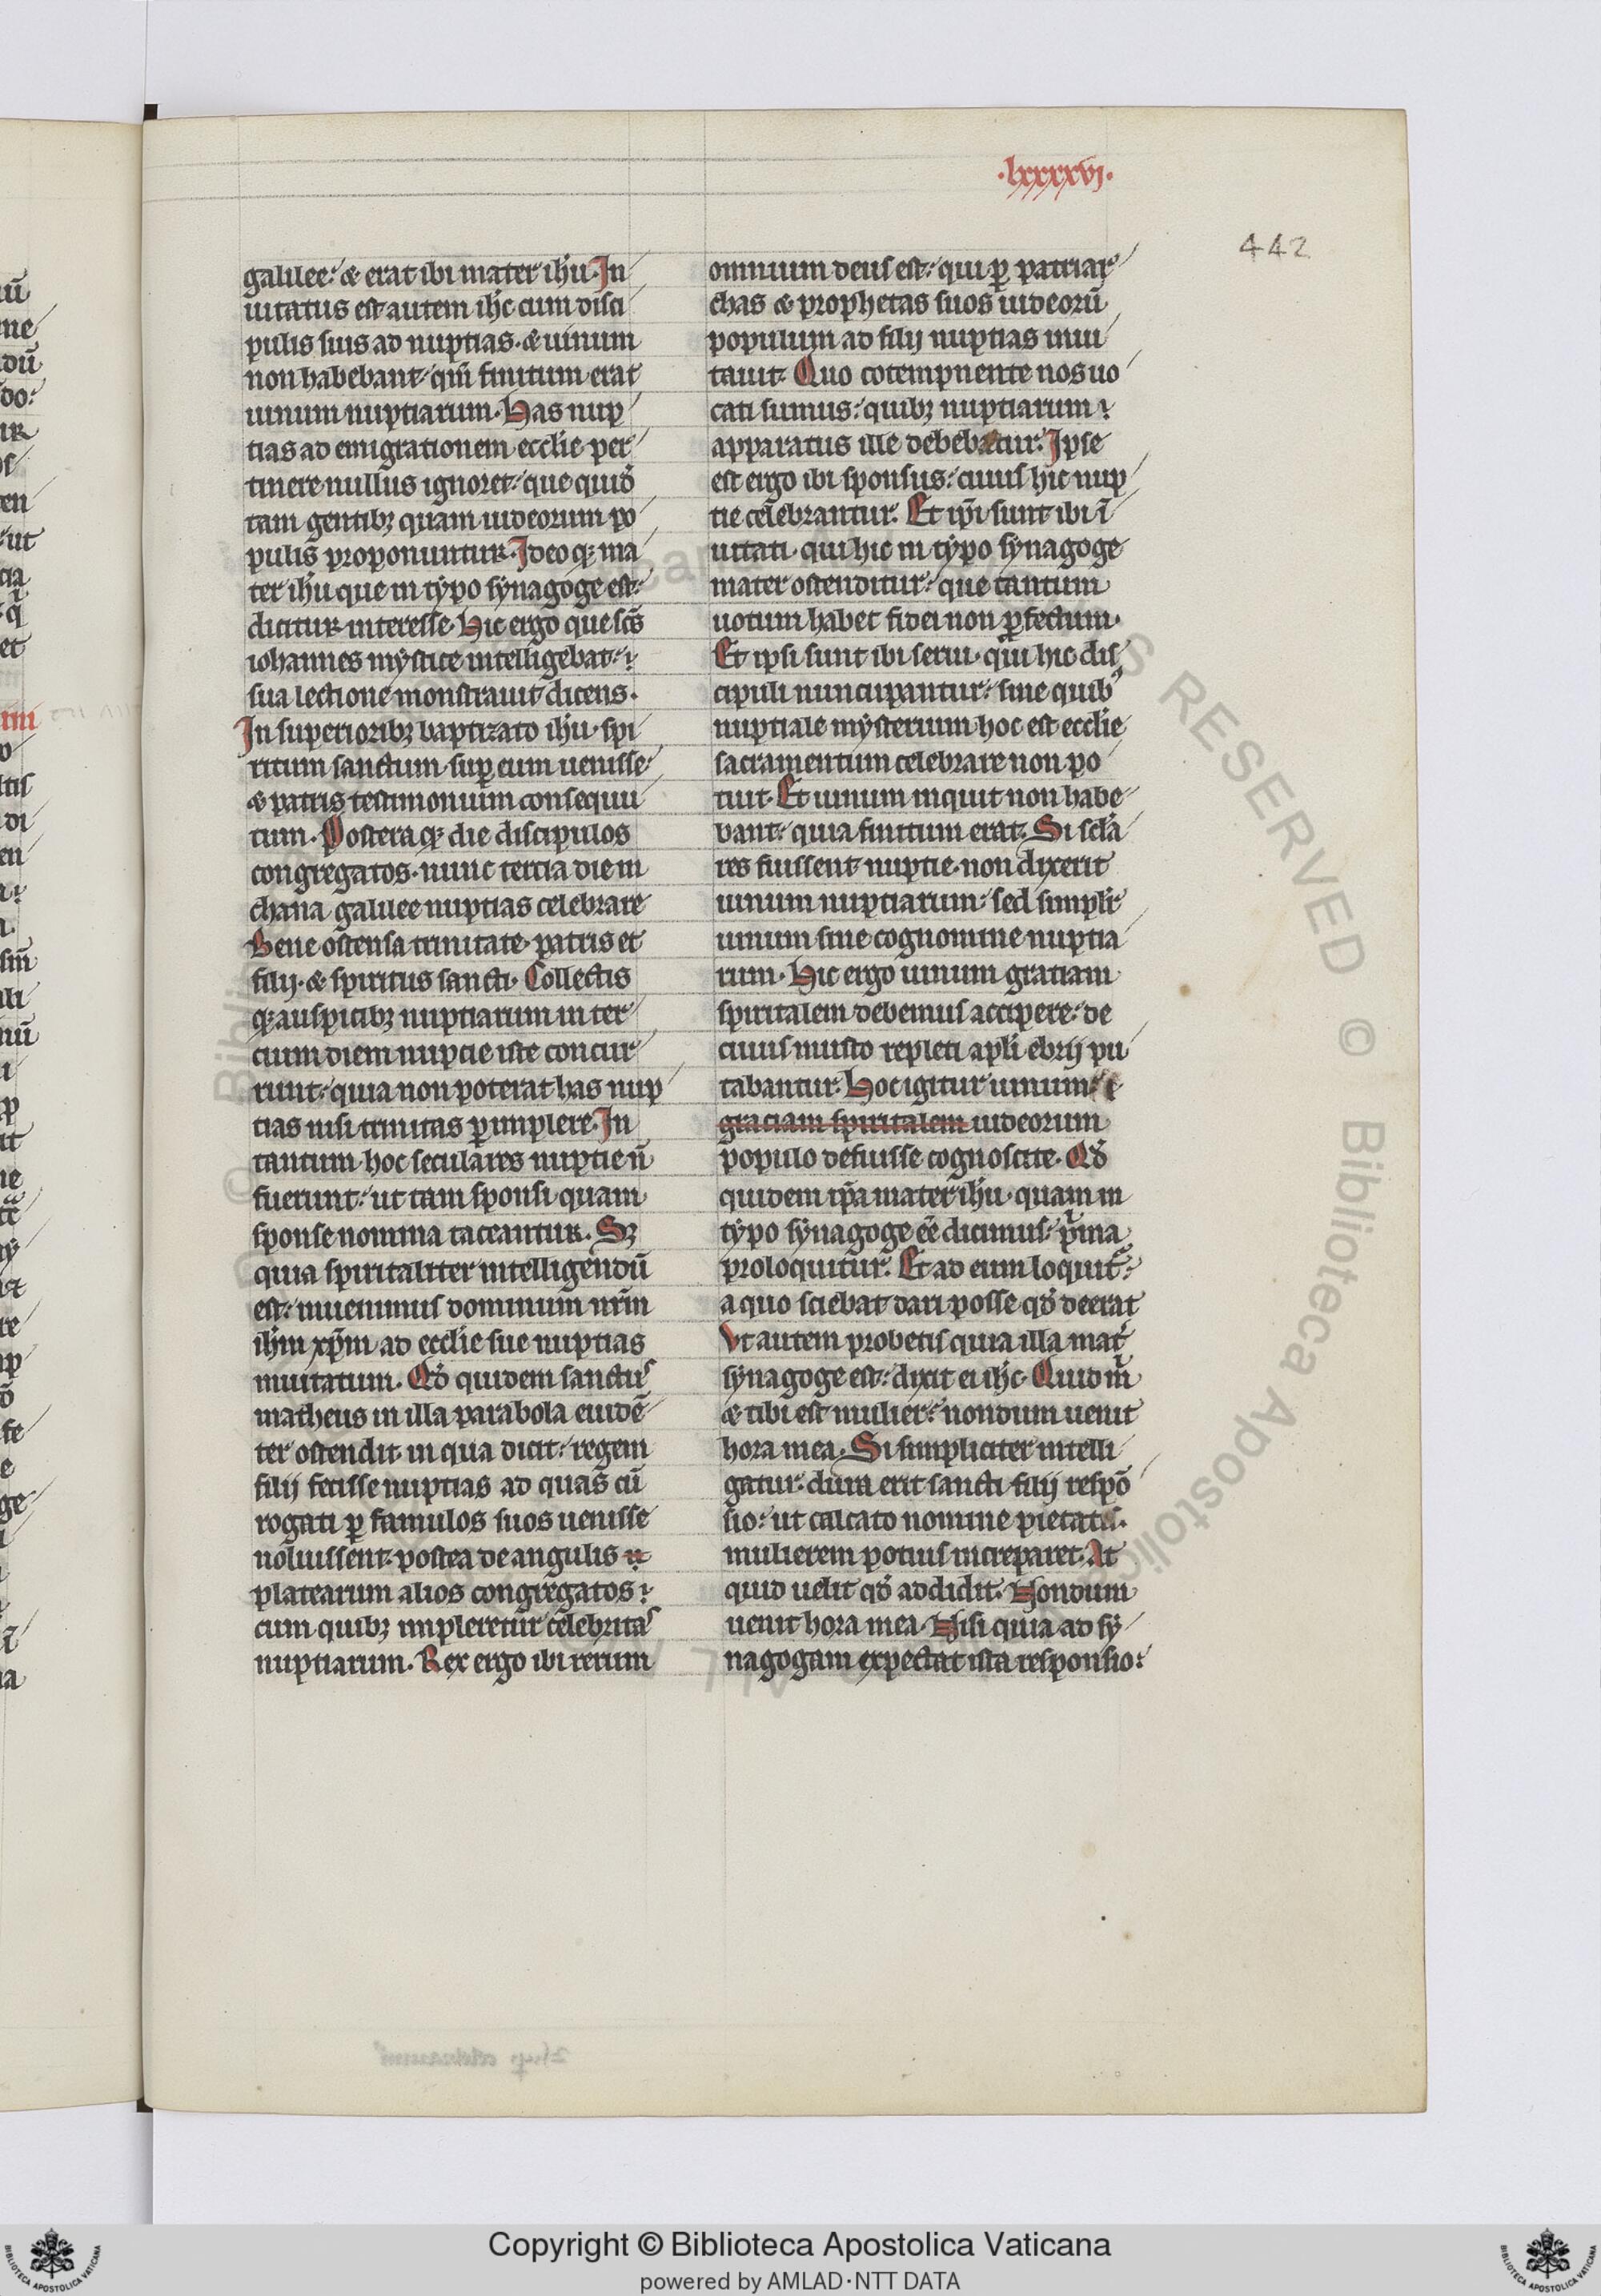 ·lxxxxvj·
442
galilee: & erat ibi mater ihu. In
uitatus est autem ihc cum disci
pulis suis ad nuptias. & uinum
non habebant: qm̄ finitum erat
uinum nuptiarum. Has nup
tias ad emigrationem ecclie per
tinere nullus ignoret: que quid
tam gentibꝫ quam iudeorum po
pulis proponuntur. Ideo qꝫ ma
ter ihu que in typo synagoge est:
dicitur interesse. Hic ergo que scs̄
iohannes mystice intelligebat:
sua lectione monstrauit dicens.
In superioribꝫ baptizato ihu. spi
ritum sanctum suꝑ eum uenisse
& patris testimonium consequu
tum. Postera qꝫ die discipulos
congregatos. nunc tercia die in
chana galilee nuptias celebrare
Bene ostensa trinitate. patris et
filij. & spiritus sancti. Collectis
qꝫ auspicibꝫ nuptiarum in ter
cium diem nuptie iste concur
runt: quia non poterat has nup
tias nisi trinitas ꝑ implere. In
tantum hoc seculares nuptie n̄
fuerunt: ut tam sponsi quam
sponse nomina taceantur. Sꝫ
quia spiritaliter intelligendū
est: inuenimus dominum nrm̄
ihm xp̄m ad ecclie sue nuptias
inuitatum. Qd̓ quidem sanctus
matheus in illa parabola euidē
ter ostendit. in qua dicit: regem
filij fecisse nuptias ad quas cū
rogati ꝑ famulos suos uenisse
noluissent. postea de angulis
platearum alios congregatos:
cum quibꝫ impleretur celebritas
nuptiarum. Rex ergo ibi rerum
omnium deus est: qui ꝑ patriar
chas & prophetas suos iudeorū
populum ad filij nuptias inui
tauit. Quo cotempnente nos uo
cati sumus: quibꝫ nuptiarum
apparatus ille debebatur. Ipse
est ergo ibi sponsus: cuius hic nup
tie celebrantur. Et ip̄i sunt ibi ī
uitati. qui hic in typo synagoge
mater ostenditur: que tantum
uotum habet fidei non ꝑfectum.
Et ipsi sunt ibi serui. qui hic dis
cipuli nuncupantur: sine quibꝰ
nuptiale mysterium hoc est ecclie
sacramentum celebrare non po
tuit. Et uinum inquit non habe
bant: quia finitum erat. Si sclā
res fuissent nuptie. non dixerit
uinum nuptiarum: sed simpli
uinum sine cognomine nuptia
rum. Hic ergo uinum gratiam
spiritalem debemus accipere: de
cuius musto repleti apli ebrij pu
tabantur. Hoc igitur uinum
graciam spiritalem iudeorum
populo defuisse cognoscite. Qd̓
quidem ip̄a mater ihu. quam in
typo synagoge ēē dicimus: pima
proloquitur. Et ad eum loquit̄:
a quo sciebat dari posse qd̓ deerat
Vt autem probetis quia illa mat̓
synagoge est: dixit ei ihc. Quid m
& tibi est mulier: nondum uenit
hora mea. Si simpliciter intelli
gatur. dura erit sancti filij respō
sio: ut calcato nomine pietatis.
mulierem potius increparet. At
quid uelit qd̓ addidit. Nondum
uenit hora mea. Nisi quia ad sy
nagogam expectat ista responsio:
Copyright © Biblioteca Apostolica Vaticana
powered by AMLAD·NTT DATA